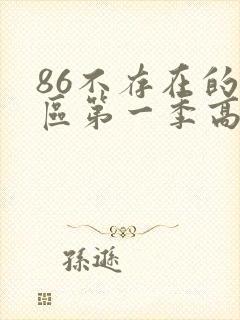 86不存在的
區第一季高
孫遜